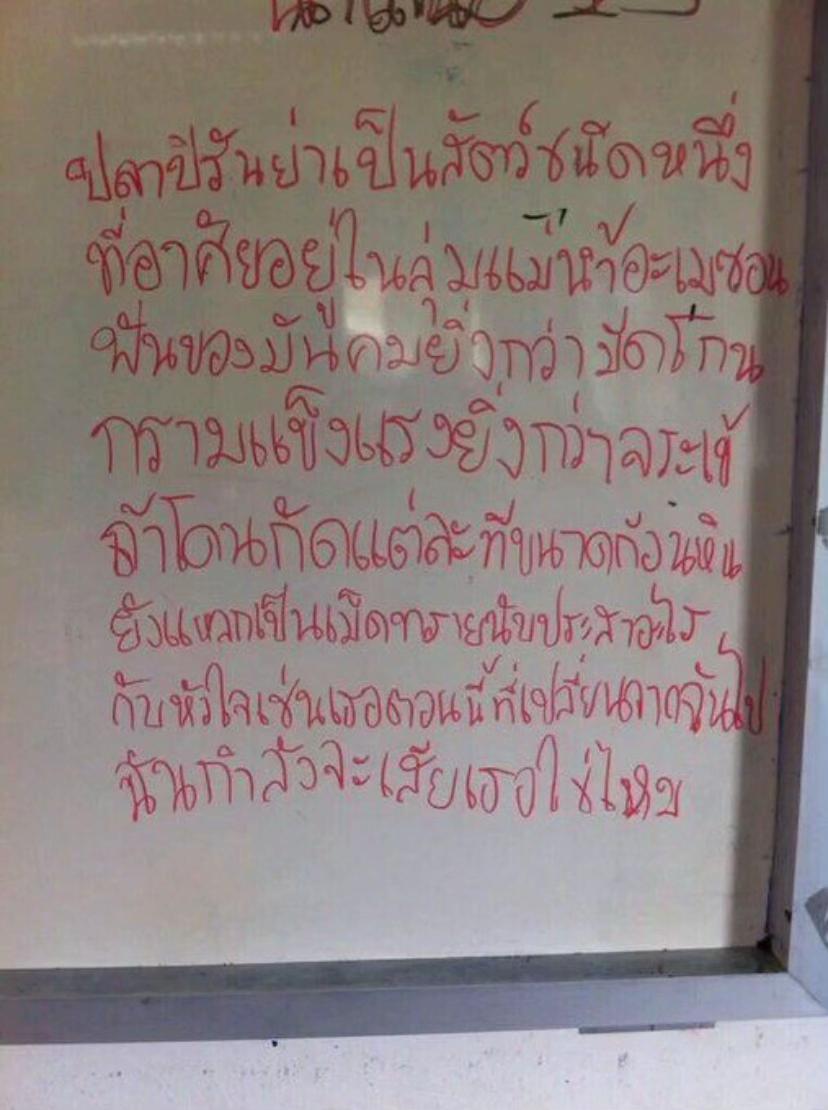 ปลาปิรันย่าเป็นสัตว์ชนิดหนึ่ง
ที่อาศัยอยู่ในลุ่มแม่น้ำอะเมซอน
ฟันของมันคมยิ่งกว่ามีดโกน
กรามแข็งแรงยิ่งกว่าจระเข้
ถ้าโดนกัดแต่ละทีขนาดก้อนหิน
ยังแหลกเป็นเม็ดทรายนับประสาอะไร
กับหัวใจเช่นเธอตอนนี้ที่เปลี่ยนจากฉันไป
ฉันกำลังจะเสียเธอใช่ไหม